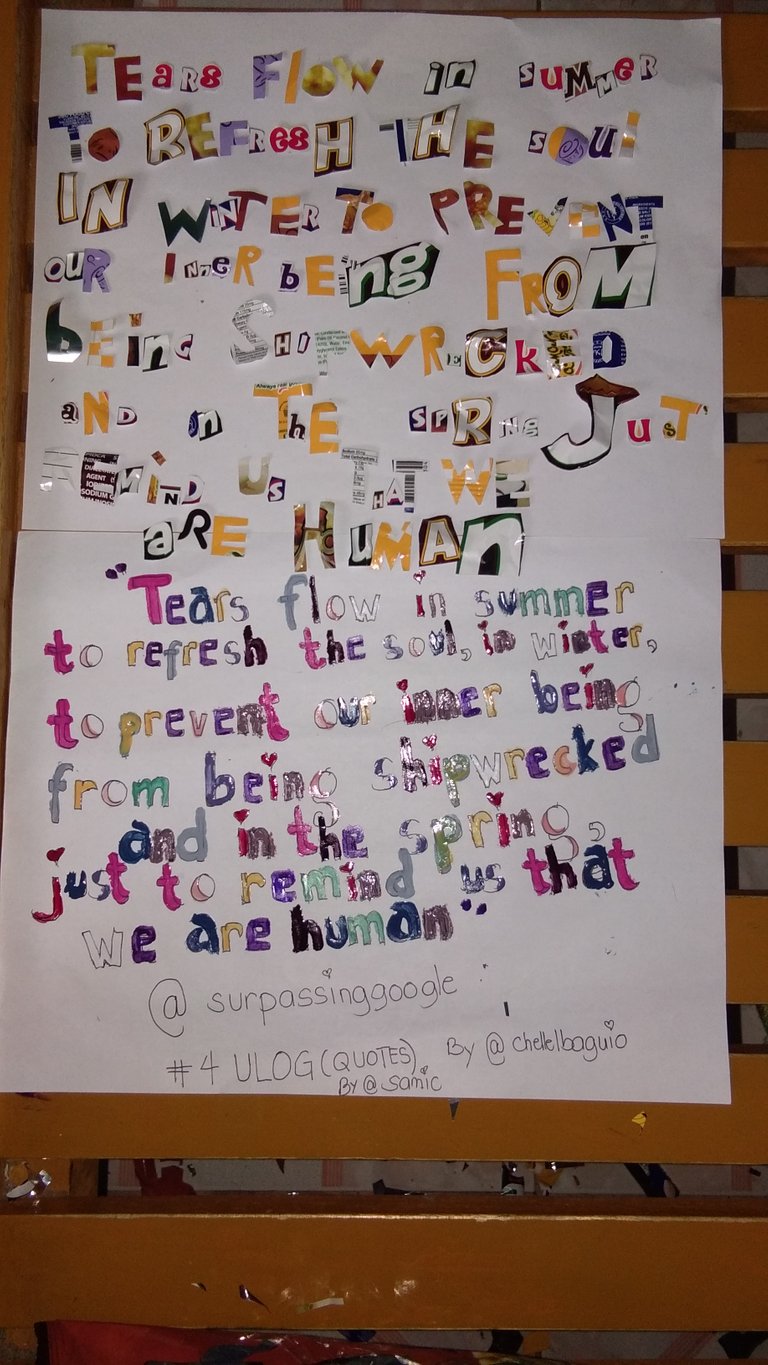 TEARS FlOW in SUMMER
TO REFRESH THE SOUl
IN WiNTER TO PREVENT
OUR InneR bEing FROM
bEing SHIPWRECKED
AND in THE SPRiNG JUST
REMIND US THAT WE
aRE HUMAn
"Tears flow in summer
to refresh the soul, in winter,
to prevent our inner being
from being shipwrecked
and in the spring,
just to remind us that
we are human"
@ surpassinggoogle
#4 ULOG (QUOTES) By @ chellelbaguio
By @ samic